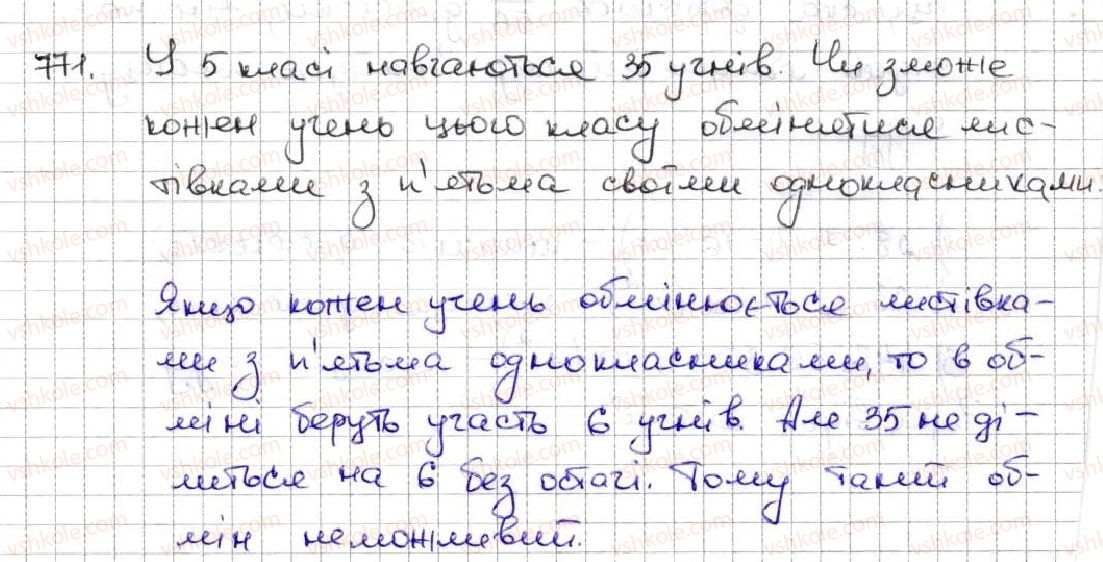 771. У 5 класі навчаються 35 учнів. Чи зможе
кожен учень цього класу обмінятися лис-
тівками з п'ятьма своїми однокласниками.
Якщо кожен учень обмінюється листівка-
ми з п'ятьма однокласниками, то в об-
міні беруть участь 6 учнів. Але 35 не ді-
литься на 6 без остачі. Тому такий об-
мін неможливий.